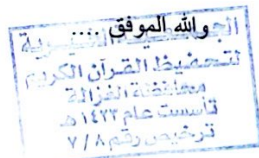 والله الموفق ....
الجمعية الخيرية
لتحفيظ القرآن الكريم
بمحافظة الغزالة
تأسست عام ١٤٢٣ هـ
ترخيص رقم ٧/٨